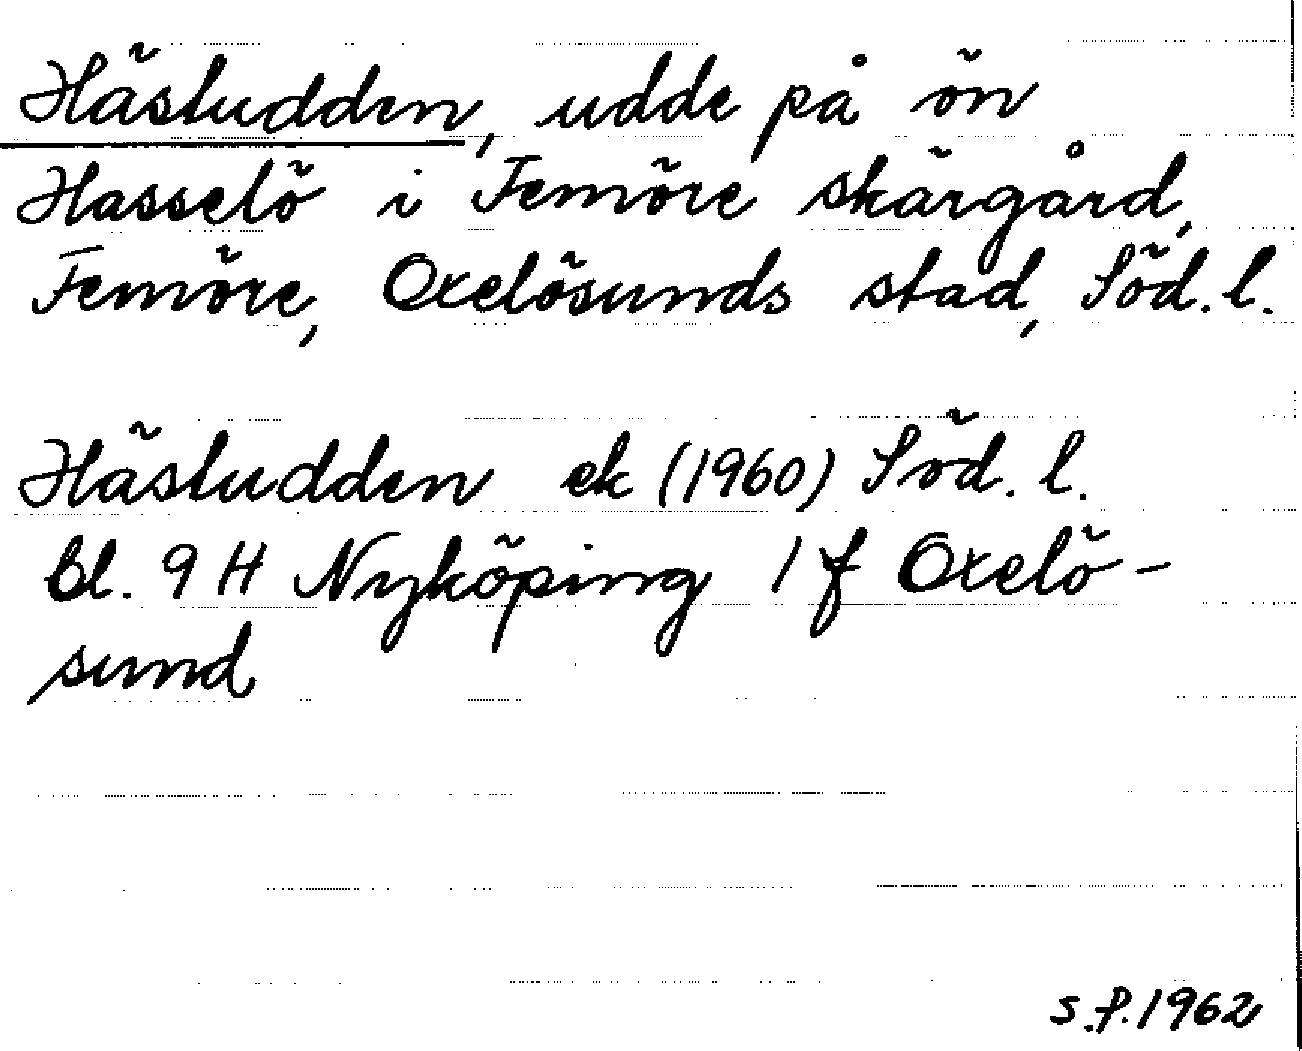 Hästudden, udde på ön
Hasselö i Femöre skärgård,
Femöre, Oxelösunds stad, Söd. l.
Hästudden ek (1960) Söd. l.
bl. 9 H Nyköping 1 f Oxelö-
sund
S.P. 1962